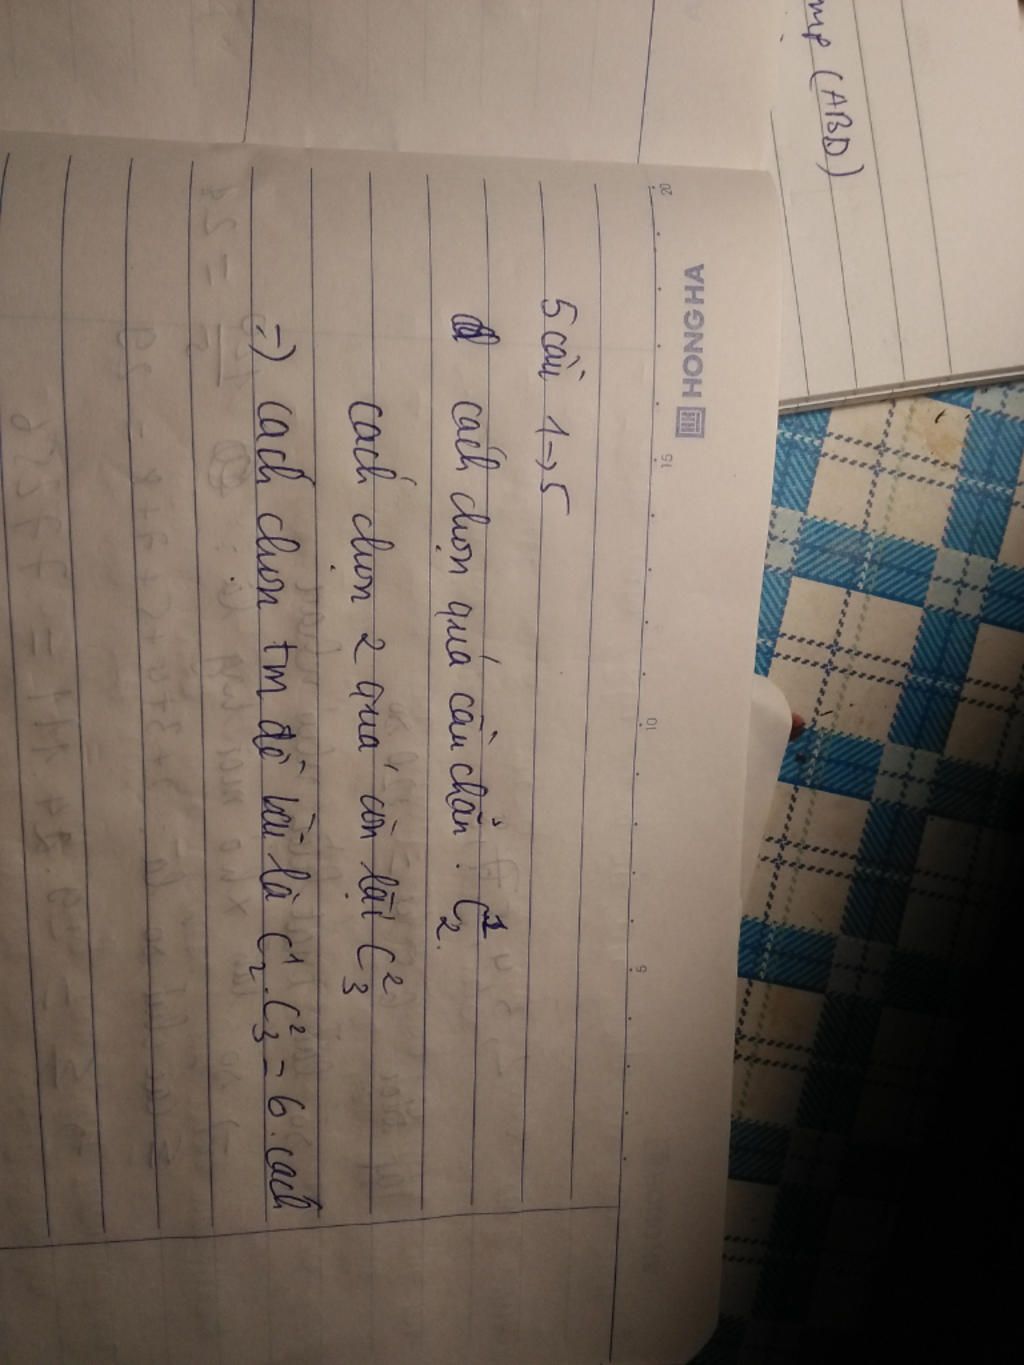 mp (ABD)
HONG HA
20 15 10 5
5 cầu 1 → 5
cách chọn quả cầu chẵn : C¹₂.
cách chọn 2 quả còn lại C²₃
=) cách chọn tm đề bài là C¹₂.C²₃ = 6 cách